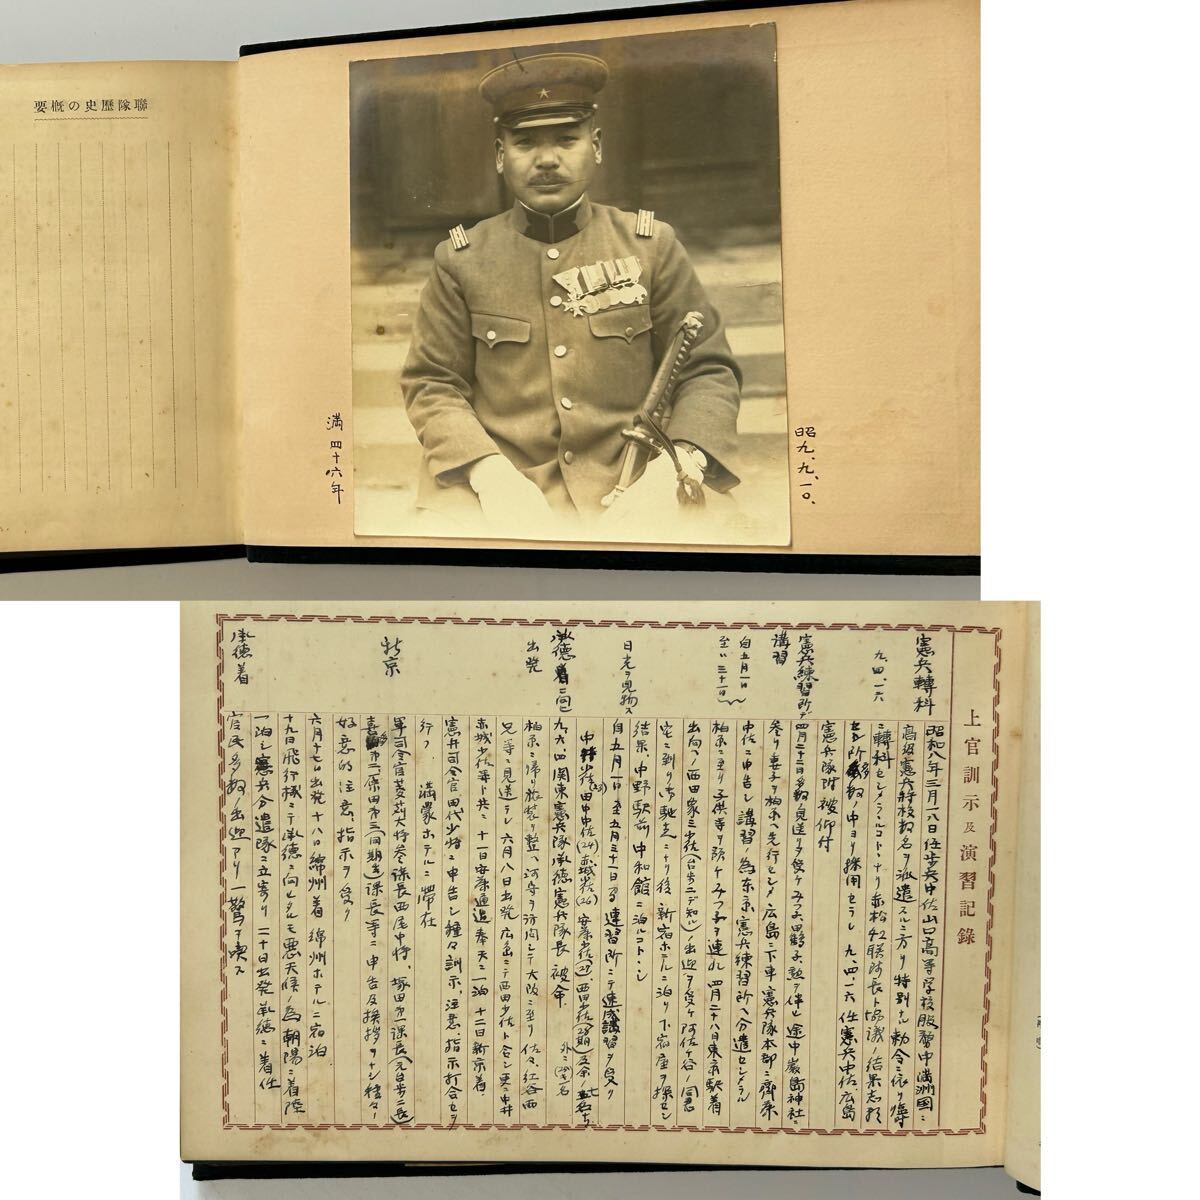 聯隊歴史の概要
昭九、九、一〇、
満四十六年
上官訓示及演習記錄
憲兵轉科
九、四、一六
憲兵練習所デ
講習
自五月一日
至〃三十一日
日光ヲ見物ス
出発
新京
承德着
昭和八年三月一八日任歩兵中佐山口高等学校服務中満洲国ニ
高級憲兵将校数名ヲ派遣スルニ方リ特別ナル勅令ニ依リ
ニ轉科セシメラルルコトトナリ赤松42聯隊長ト
数ノ中ヨリ採用セラレ九、四、一六任憲兵中佐、広島
憲兵隊附被仰付
四月二十二日多数見送リヲ受ケみつ子、田鶴子、勲ヲ伴ヒ途中厳島神社ニ
参リ妻子ヲ柏原ヘ先行セシメ広島ニ下車憲兵隊本部ニ
中佐ニ申告シ講習ノ為東京憲兵練習所ヘ分遣セシメラル
柏原ニ至リ子供等ヲ預ケみつ子ヲ連レ四月二十八日東京駅着
出向ヘノ西田家三少佐(台歩二デ知ル)ノ出迎ヲ受ケ阿佐ケ谷ノ同君
宅ニ到リ馳走ニナリ後新宿ホテルニ泊リ下宿屋ヲ探セシ
結果、中野駅前中和館ニ泊ルコトトシ
自五月一日至五月三十一日間練習所ニテ速成講習ヲ受ク
九、六、四関東憲兵隊承德憲兵隊長被命
柏原ニ帰リ旅装ヲ整ヘ河守ヲ訪問シテ大阪ニ至リ佐々、紅谷西
兄等ニ見送ラレ六月八日出発広島ニテ西田少佐ト合シ更ニ中井
赤城少佐等ト共ニ十一日安東通過奉天ニ一泊十二日新京着
憲兵司令官田代少将ニ申告シ種々訓示、注意、指示打合セヲ
行フ 満蒙ホテルニ滞在
軍司令官菱苅大将参謀長西尾中将、塚田第一課長(元台歩二長)
第二、原田第三(同期生)課長等ニ申告及挨拶ヲナシ種々ノ
好意的注意、指示ヲ受ク
六月十七日出発十八日錦州着錦州ホテルニ宿泊
十九日飛行機ニテ承德ニ向ヒタルモ悪天候ノ為朝陽ニ着陸
一泊シ憲兵分遣隊ニ立寄リ二十日出発承德ニ着任
官民多数ノ出迎アリ一驚ヲ喫ス